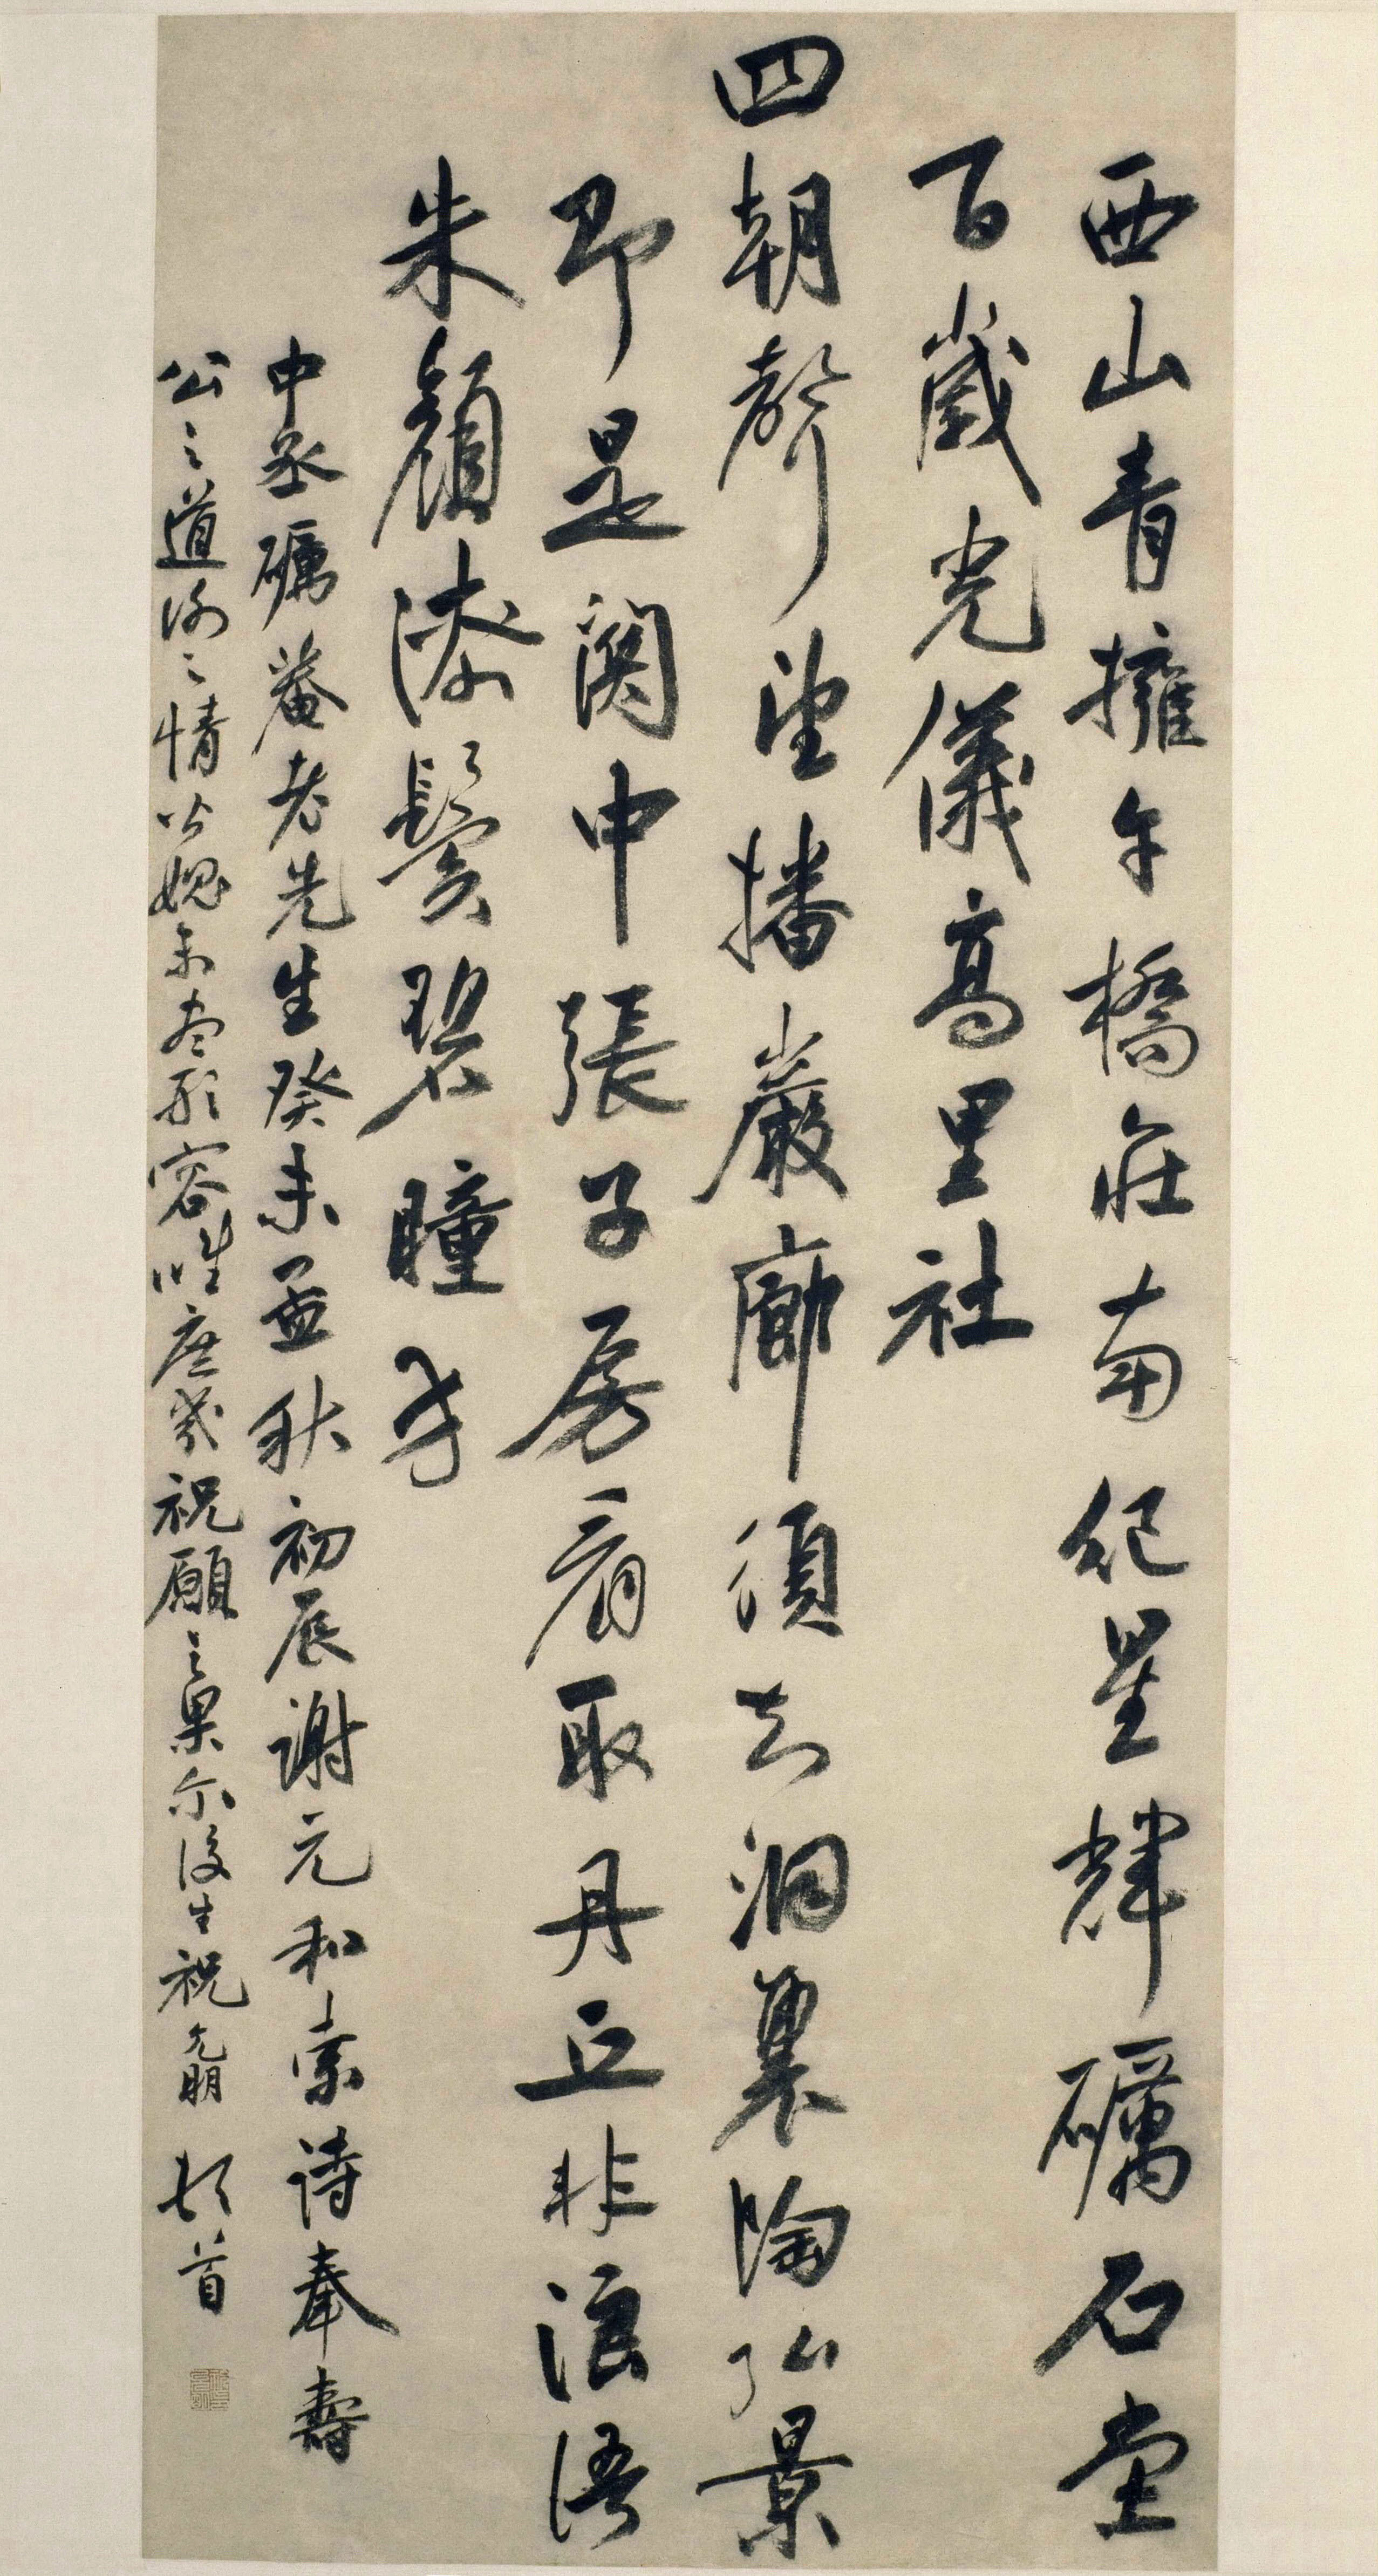 西山青擁午橋莊南紀星輝礪石堂
百歲光儀高里社
四朝聲望播巖廊須知洞裏陶弘景
即是関中張子房看取丹丘非浪語
朱顏漆鬢碧瞳方
中丞礪菴老先生癸未孟秋初辰謝元和索詩奉壽
公之道網之情皆愧未盡形容惟庶幾祝願之果爾後生祝允明頓首